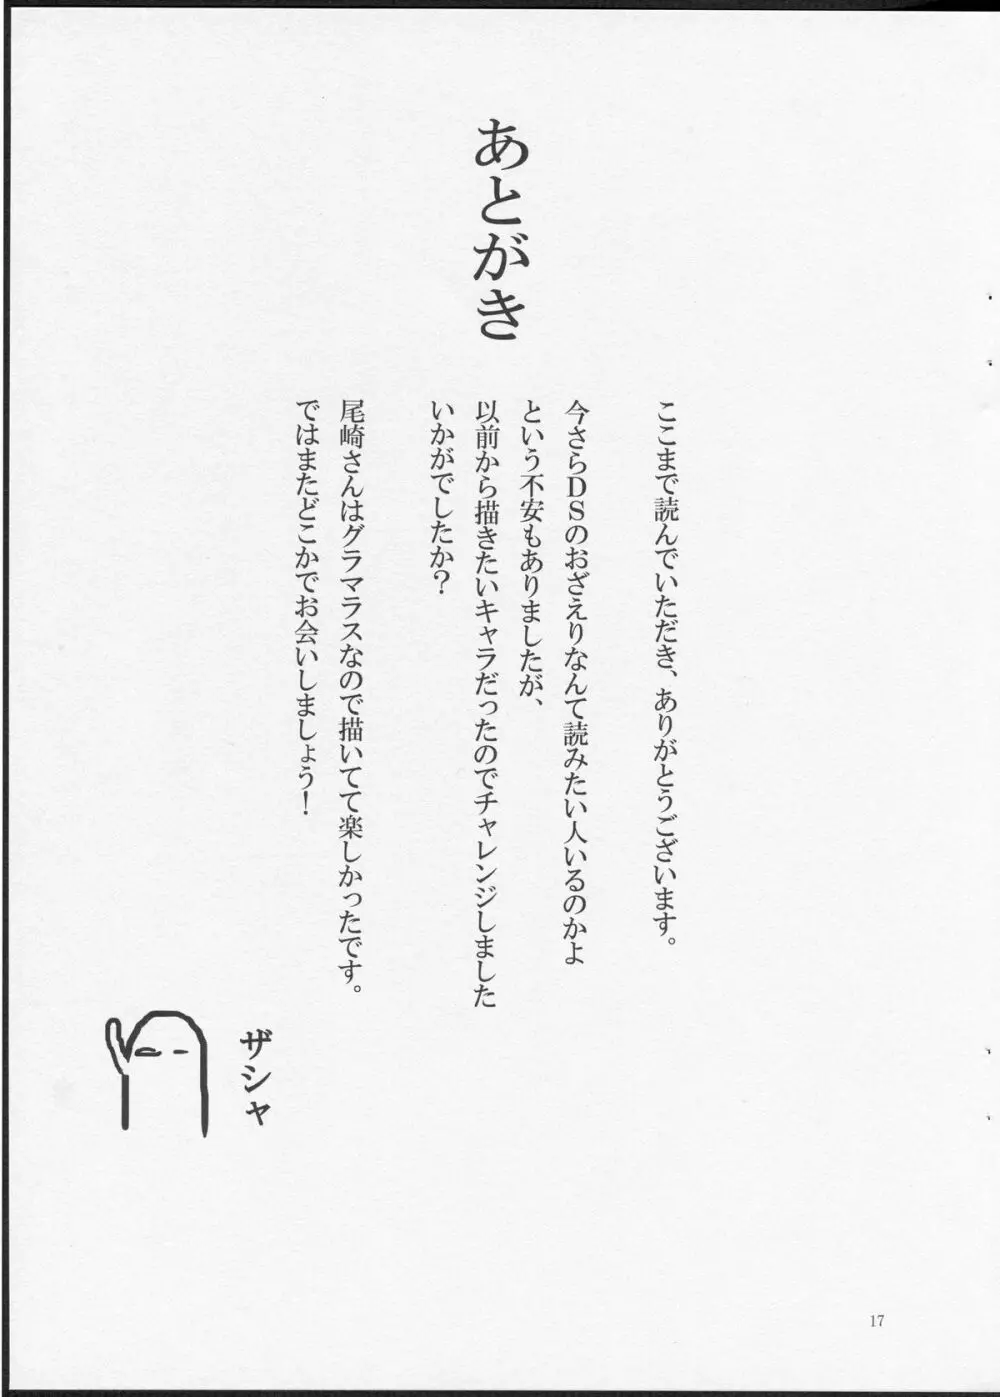 あとがき
ここまで読んでいただき、ありがとうございます。
今さらDSのおざえりなんて読みたい人いるのかよ
という不安もありましたが、
以前から描きたいキャラだったのでチャレンジしました
いかがでしたか？
尾崎さんはグラマラスなので描いてて楽しかったです。
ではまたどこかでお会いしましょう！
ザシャ
17